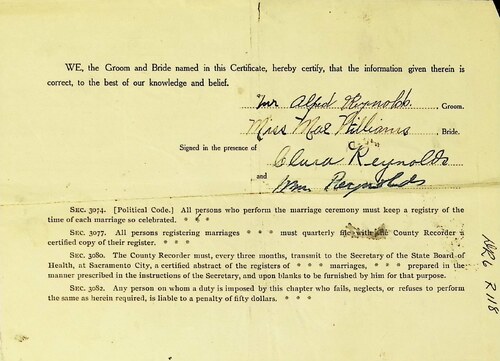 WE, the Groom and Bride named in this Certificate, hereby certify, that the information given therein is
correct, to the best of our knowledge and belief.
Mr Alfred Reynolds, Groom.
Miss Mae Williams, Bride.
Signed in the presence of
Clara Reynolds
and
Wm Reynolds
SEC. 3074. [Political Code.] All persons who perform the marriage ceremony must keep a registry of the
time of each marriage so celebrated. * * *
SEC. 3077. All persons registering marriages * * * must quarterly file with the County Recorder a
certified copy of their register. * * *
SEC. 3080. The County Recorder must, every three months, transmit to the Secretary of the State Board of
Health, at Sacramento City, a certified abstract of the registers of * * * marriages, * * * prepared in the
manner prescribed in the instructions of the Secretary, and upon blanks to be furnished by him for that purpose.
SEC. 3082. Any person on whom a duty is imposed by this chapter who fails, neglects, or refuses to perform
the same as herein required, is liable to a penalty of fifty dollars. * * *
R 118